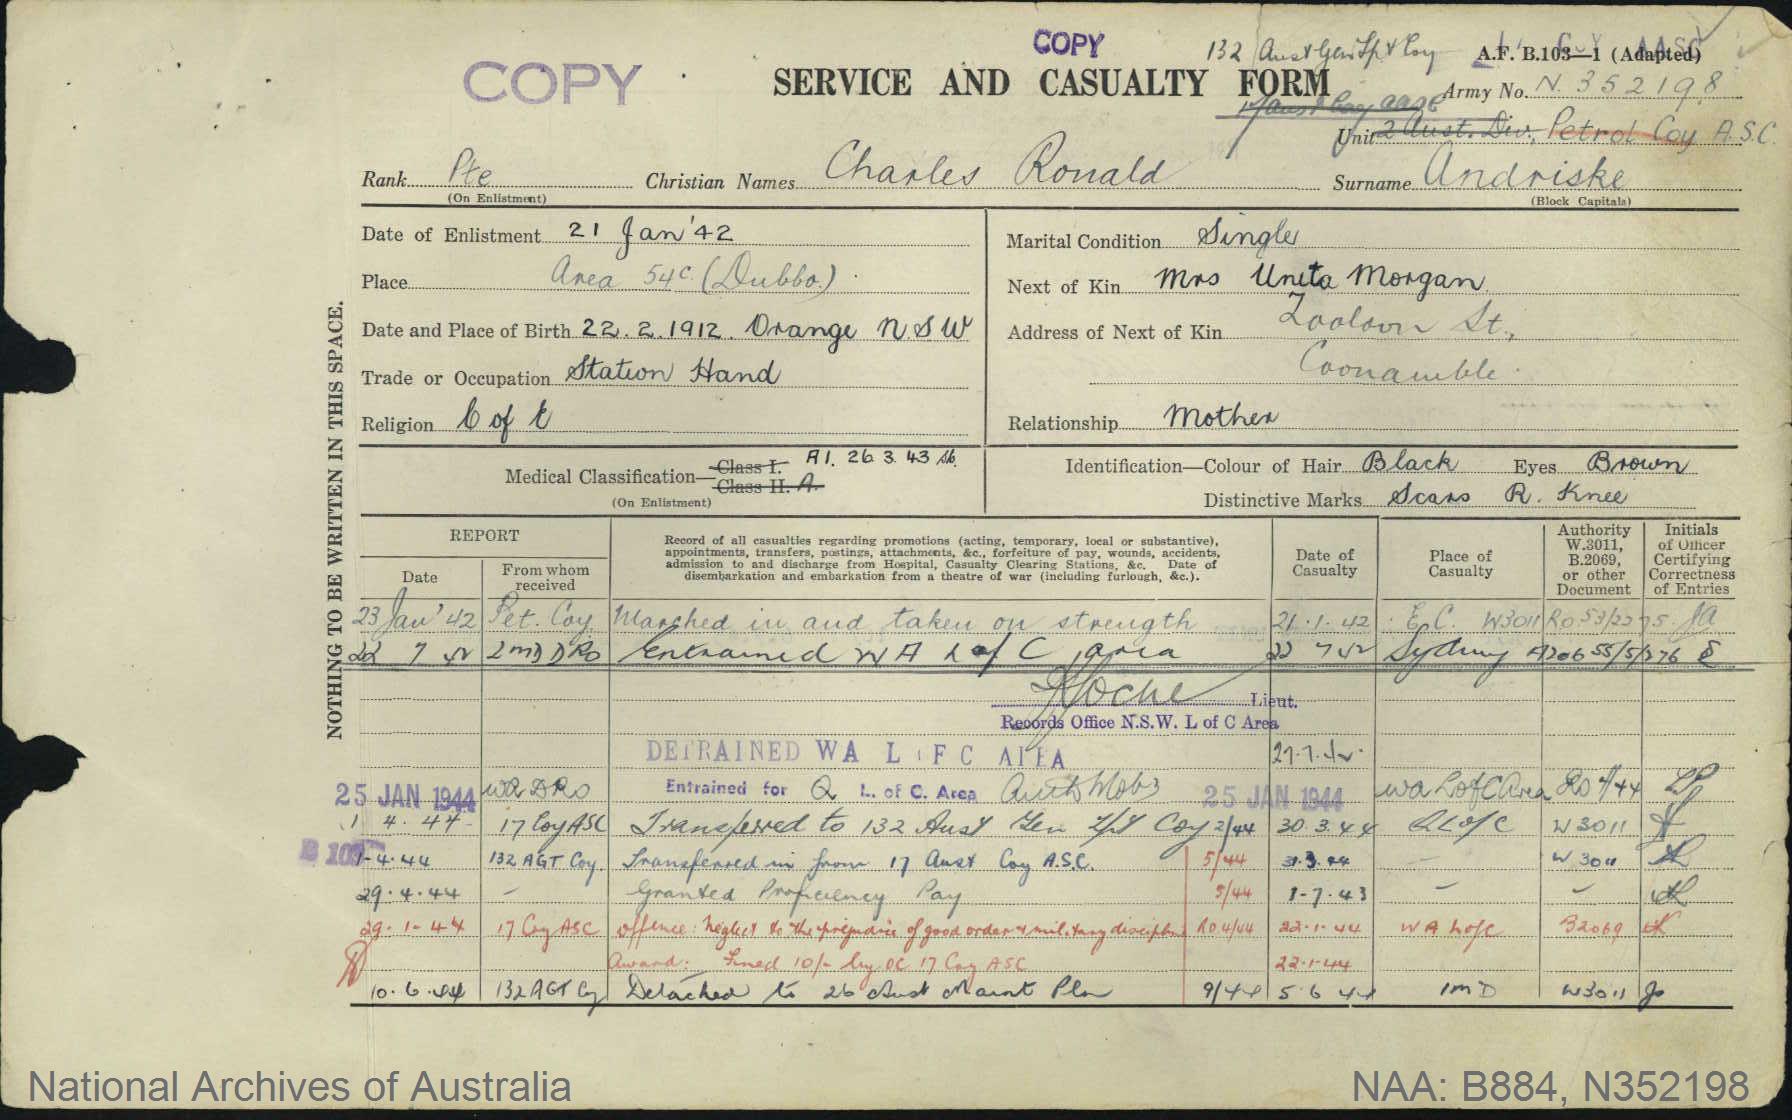 COPY
COPY
132 Aust Gen Tpt Coy
A.F. B.103—1 (Adapted)
SERVICE AND CASUALTY FORM
Army No. N. 352198
17 Aust Coy AASC
Unit 2 Aust. Div. Petrol Coy A.S.C.
Rank Pte Christian Names Charles Ronald Surname Andriske
(On Enlistment) (Block Capitals)
Date of Enlistment 21 Jan '42
Marital Condition Single
Place Area 54c. (Dubbo.)
Next of Kin Mrs Uneta Morgan
Date and Place of Birth 22.2.1912. Orange N S W
Address of Next of Kin St.,
Coonamble.
Trade or Occupation Station Hand
Religion C of E
Relationship Mother
NOTHING TO BE WRITTEN IN THIS SPACE.
Medical Classification— Class I. A1. 26.3.43
Class II. A.
(On Enlistment)
Identification—Colour of Hair Black Eyes Brown
Distinctive Marks Scars R. Knee
REPORT
Date
From whom received
Record of all casualties regarding promotions (acting, temporary, local or substantive),
appointments, transfers, postings, attachments, &c., forfeiture of pay, wounds, accidents,
admission to and discharge from Hospital, Casualty Clearing Stations, &c. Date of
disembarkation and embarkation from a theatre of war (including furlough, &c.).
Date of Casualty
Place of Casualty
Authority W.3011, B.2069, or other Document
Initials of Officer Certifying Correctness of Entries
23 Jan' 42 Pet. Coy. Marched in and taken on strength 21.1.42 E.C. W3011 RO 53/2275 JA
22 7 42 2MD DRO Entrained W A L of C area 22 7 42 Sydney
Roche Lieut.
Records Office N.S.W. L of C Area
DETRAINED WA L OF C AREA 27.7.42
25 JAN 1944 WA DRO Entrained for Q L. of C. Area 25 JAN 1944 WA L of C Area RO 4/44
1 4.44 17 Coy ASC Transferred to 132 Aust Gen Tpt Coy 2/44 30.3.44 Q L of C W3011
B 103
1-4-44 132 AGT Coy. Transferred in from 17 Aust Coy A.S.C. 5/44 31.3.44 — W 3011
29.4.44 — Granted Proficiency Pay 5/44 1-7.43 — —
29-1-44 17 Coy ASC Offence: Neglect to the prejudice of good order & military discipline RO 4/44 22-1-44 W A L of C B2069
Award: Fined 10/- by OC 17 Coy ASC 22-1-44
10.6.44 132 AGT Coy Detached to 26 Aust Maint Pln 9/44 5.6.44 1MD W3011
National Archives of Australia
NAA: B884, N352198